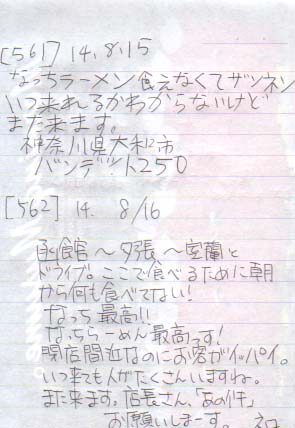 [561] 14.8.15
なっちラーメン食えなくてザンネン
いつ来れるかわからないけど
また来ます。
神奈川県大和市
バンデット250
[562] 14. 8/16
函館～夕張～室蘭と
ドライブ。ここで食べるために朝
から何も食べてない!
なっち最高!!
なっちらーめん最高っす!
閉店間近なのにお客がイッパイ。
いつ来ても人がたくさんいますね。
また来ます。店長さん、「あの件」
お願いしまーす。